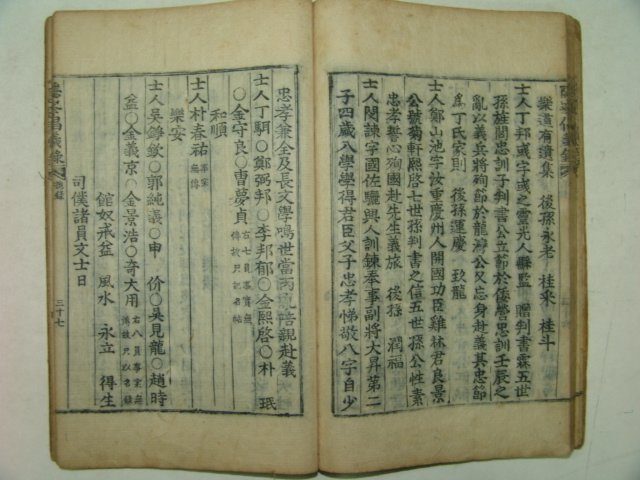 樂道有讀集　後孫永老　桂來　桂斗
士人丁邦或字或之靈光人縣監　贈判書霖五世
孫旌閭忠訓子判書公立節於倭營忠訓壬辰之
亂以義兵將殉節於龍津公又忘身赴義其忠節
爲丁氏家則　後孫運慶　玖龍
士人鄭山池字汝重慶州人開國功臣雞林君良景
公號菊軒熙啓七世孫判書之信五世孫公性素
忠孝誓心殉國赴先生義旅　後孫　潤福
士人閔諫字國佐驪興人訓鍊奉事副將大昇第二
子四歲入學學得君臣父子忠孝悌敬八字自少
三十六
忠孝兼全及長文學鳴世當丙亂陪親赴義
士人丁駬○鄭弼邦○李邦郁○金熙啓○朴　珉
○金守良○曹夢貞 右七員事實無傳故只記名帖
和順
士人朴春祐 事實無傳
樂安
士人吳錚欽○郭純義○申　价○吳見龍○趙時
益○金義京○金景浩○奇大用 右八員事實無傳故只以名錄
司僕諸員文士日
館奴戒盆　風水　永立　得生
三十七